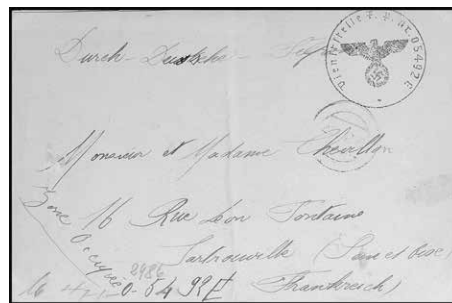 Durch - Deutsche -
Dienststelle F. P. Nr. 05492 E
Monsieur et Madame Thevillon
16 Rue Bon Fontaine
Sartrouville (Seine et Oise)
Frankreich
Zone Occupée
2986